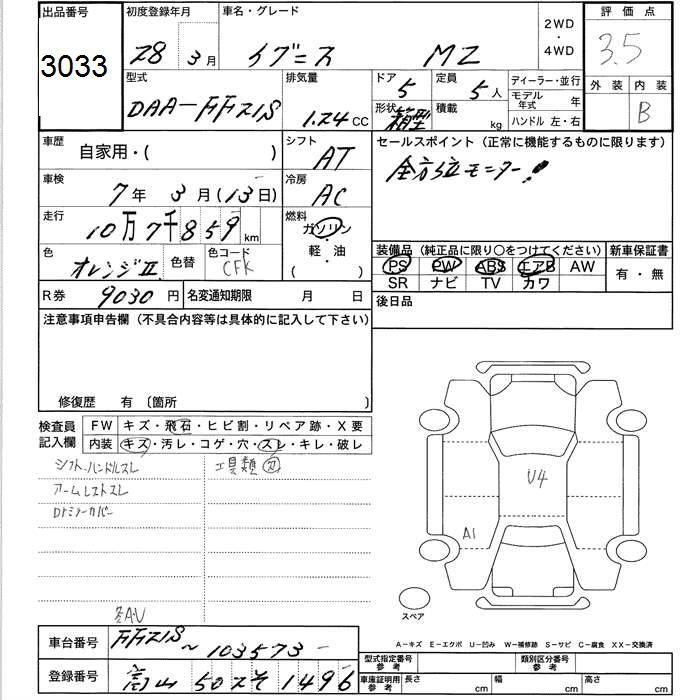 出品番号 初度登録年月 車名・グレード 2WD ・ 4WD 評価点
3033 28 3月 イグニス MZ 3.5
型式 DAA-FF21S 排気量 1.24 CC ドア 5 定員 5人 ディーラー・並行 外装 内装
形状 箱型 積載 kg モデル年式 年 B
ハンドル 左・右
車歴 自家用・( ) シフト AT セールスポイント (正常に機能するものに限ります)
車検 7年 3月 (13日) 冷房 AC 全方位モニター!
走行 10万7千859km 燃料 ガソリン・軽・油 ( )
色 オレンジⅡ 色替 色コード CFK 装備品 (純正品に限り〇をつけてください) 新車保証書
PS PW ABS エアB AW 有・無
SR ナビ TV カワ
R券 9030円 名変通知期限 月 日 後日品
注意事項申告欄 (不具合内容等は具体的に記入して下さい)
修復歴 有 〔箇所
検査員記入欄 FW キズ・飛石・ヒビ割・リペア跡・X要
内装 キズ・汚レ・コゲ・穴・スレ・キレ・破レ
シフト、ハンドルスレ 工具類
アームレストスレ
Drミラーカバー
U4
A1
スペア
A-キズ E-エクボ U-凹み W-補修跡 S-サビ C-腐食 XX-交換済
車台番号 FF21S~103573
型式指定番号 参考 類別区分番号 参考
登録番号 富山 502 そ 1496
車庫証明用 参考 長さ cm 幅 cm 高さ cm